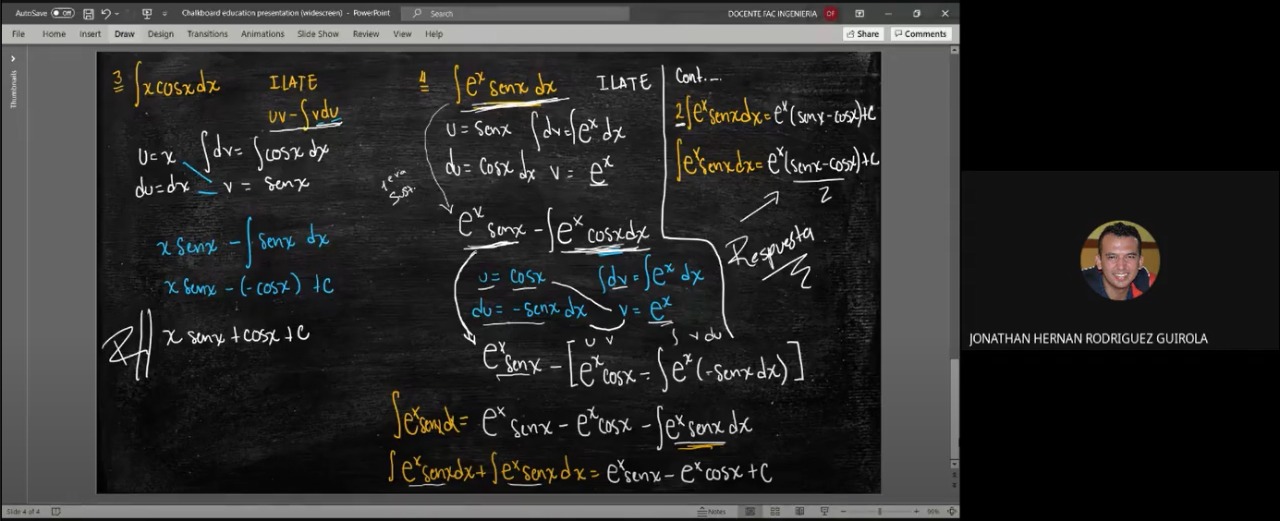 AutoSave Off
Chalkboard education presentation (widescreen) - PowerPoint
Search
DOCENTE FAC INGENIERIA
DF
File Home Insert Draw Design Transitions Animations Slide Show Review View Help
Share Comments
Thumbnails
3 ∫x cosx dx
ILATE
uv - ∫vdu
u = x ∫dv = ∫cosx dx
du = dx v = senx
x senx - ∫senx dx
x senx - (-cosx) + C
R// x senx + cosx + C
4 ∫e^x senx dx ILATE
u = senx ∫dv = ∫e^x dx
du = cosx dx v = e^x
e^x senx - ∫e^x cosx dx
u = cosx ∫dv = ∫e^x dx
du = -senx dx v = e^x
u v ∫ v du
e^x senx - [e^x cosx - ∫e^x (-senx dx)]
∫e^x senx dx = e^x senx - e^x cosx - ∫e^x senx dx
∫e^x senx dx + ∫e^x senx dx = e^x senx - e^x cosx + C
Cont....
2∫e^x senx dx = e^x (senx - cosx) + C
∫e^x senx dx = e^x (senx - cosx) + C
2
Respuesta
JONATHAN HERNAN RODRIGUEZ GUIROLA
Slide 4 of 4
Notes
90%